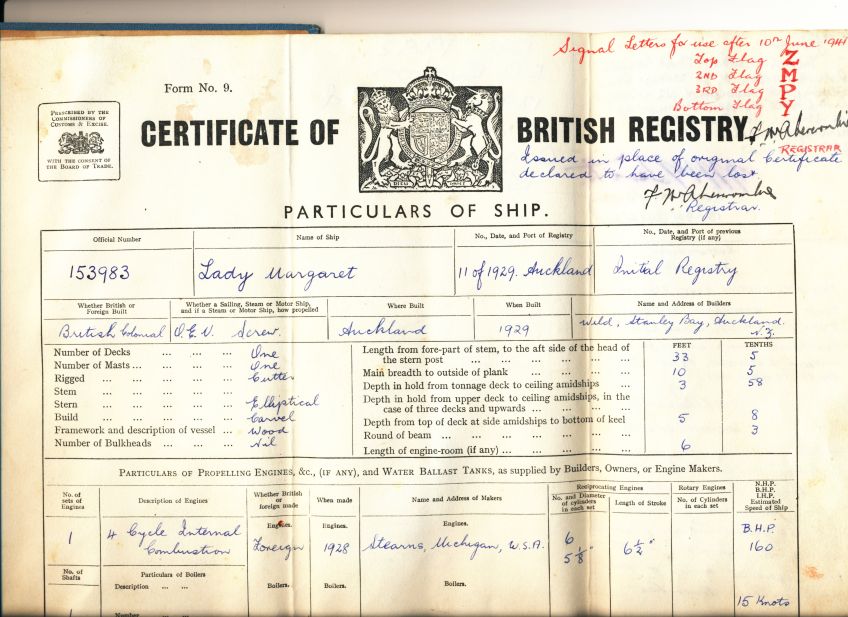 Signal Letters for use after 10th June 1941
Top Flag Z
2ND Flag M
3RD Flag P
Bottom Flag Y
Form No. 9.
PRESCRIBED BY THE
COMMISSIONERS OF
CUSTOMS & EXCISE.
WITH THE CONSENT OF
THE BOARD OF TRADE.
CERTIFICATE OF BRITISH REGISTRY.
REGISTRAR
Issued in place of original Certificate
declared to have been lost
Registrar.
PARTICULARS OF SHIP.
Official Number
Name of Ship
No., Date, and Port of Registry
No., Date, and Port of previous
Registry (if any)
153983
Lady Margaret
11 of 1929. Auckland
Initial Registry
Whether British or
Foreign Built
Whether a Sailing, Steam or Motor Ship,
and if a Steam or Motor Ship, how propelled
Where Built
When Built
Name and Address of Builders
British Colonial
O.E.V. Screw.
Auckland
1929
Wild, Stanley Bay, Auckland.
N.Z.
Number of Decks ... ... ... One
Number of Masts ... ... ... One
Rigged ... ... ... ... Cutter
Stem ... ... ... ...
Stern ... ... ... ... Elliptical
Build ... ... ... ... Carvel
Framework and description of vessel ... Wood
Number of Bulkheads ... ... Nil
FEET TENTHS
Length from fore-part of stem, to the aft side of the head of
the stern post ... ... ... ... ... 33 5
Main breadth to outside of plank ... ... ... ... 10 5
Depth in hold from tonnage deck to ceiling amidships ... 3 58
Depth in hold from upper deck to ceiling amidships, in the
case of three decks and upwards ... ... ... ...
Depth from top of deck at side amidships to bottom of keel 5 8
Round of beam ... ... ... ... ... ... 3
Length of engine-room (if any) ... ... ... ... 6
PARTICULARS OF PROPELLING ENGINES, &c., (IF ANY), AND WATER BALLAST TANKS, AS SUPPLIED BY BUILDERS, OWNERS, OR ENGINE MAKERS.
No. of
sets of
Engines
Description of Engines
Whether British
or
foreign made
When made
Name and Address of Makers
Reciprocating Engines
No. and Diameter
of cylinders
in each set
Length of Stroke
Rotary Engines
No. of Cylinders
in each set
N.H.P.
B.H.P.
I.H.P.
Estimated
Speed of Ship
1
4 Cycle Internal
Combustion
Engines.
Foreign
Engines.
1928
Engines.
Stearns, Michigan, U.S.A.
6
5 1/8"
6 1/2"
B.H.P.
160
No. of
Shafts
Particulars of Boilers
Description ... ...
Boilers.
Boilers.
Boilers.
15 Knots
1
Number